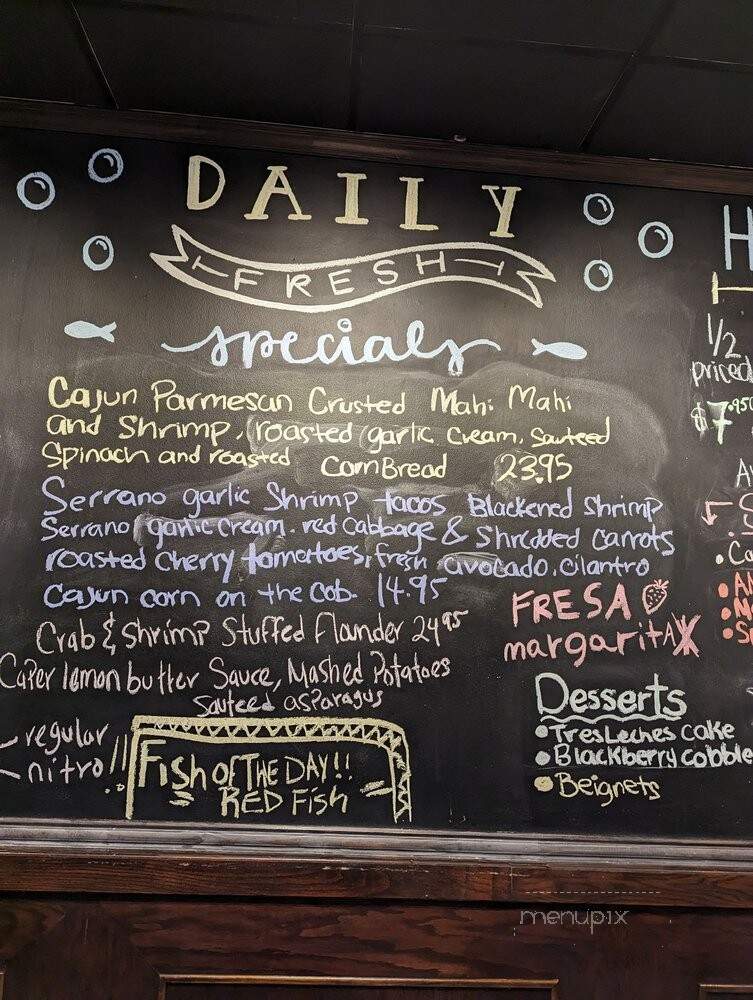 DAILY
FRESH
specials
Cajun Parmesan Crusted Mahi Mahi
and Shrimp, roasted garlic cream, Sauteed
Spinach and roasted cornBread 23.95
Serrano garlic Shrimp tacos Blackened Shrimp
Serrano garlic cream. red Cabbage & Shredded Carrots
roasted Cherry tomatoes, fresh avocado, cilantro
Cajun corn on the Cob. 14.95
Crab & Shrimp Stuffed Flounder 24.95
Caper lemon butter Sauce, Mashed Potatoes
Sauteed asparagus
FRESA
margarita
regular
nitro!!
Fish OF THE DAY!!
RED Fish
Desserts
• Tres Leches cake
• Blackberry cobble
• Beignets
H
1/2
priced
$7.95
menupix